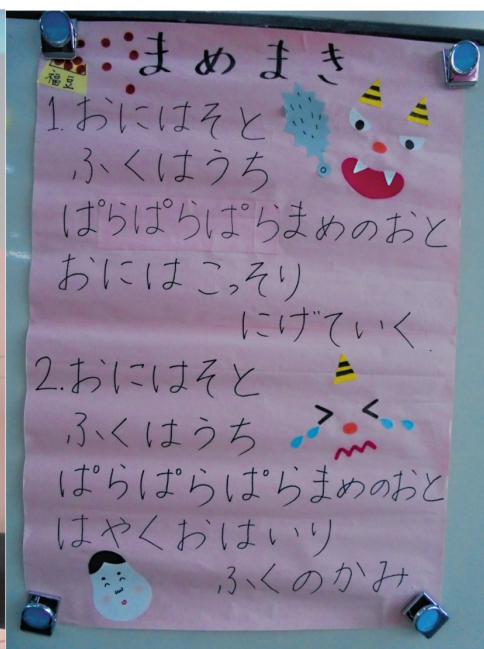 まめまき
1. おにはそと
ふくはうち
ぱらぱらぱらまめのおと
おにはこっそり
にげていく.
2. おにはそと
ふくはうち
ぱらぱらぱらまめのおと
はやくおはいり
ふくのかみ